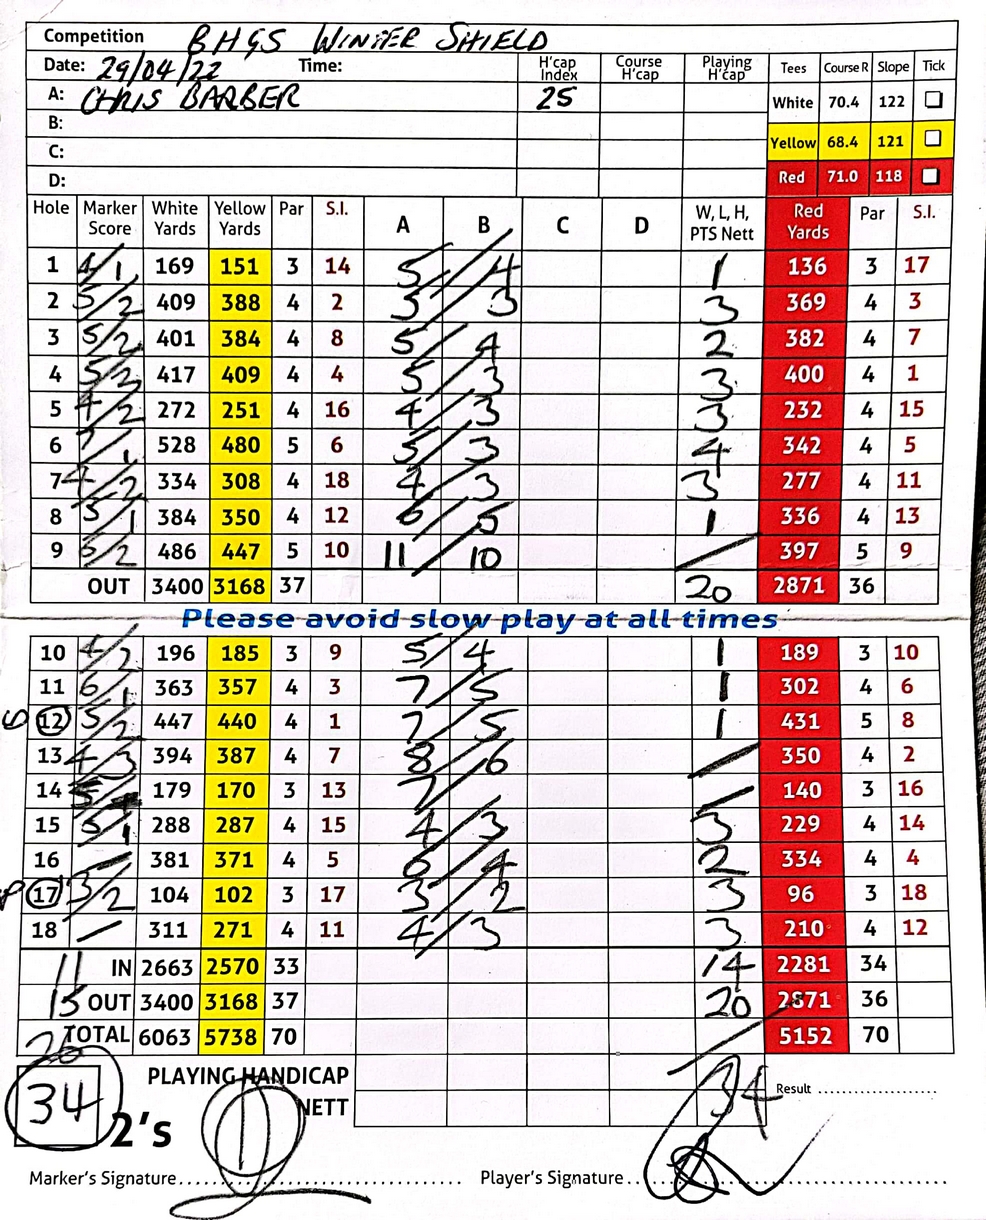 Competition BHGS WINTER SHIELD
Date: 29/04/22 Time: H'cap Index Course H'cap Playing H'cap Tees Course R Slope Tick
A: CHRIS BARBER 25 White 70.4 122
B:
Yellow 68.4 121
C:
D: Red 71.0 118
Hole Marker Score White Yards Yellow Yards Par S.I. A B C D W, L, H, PTS Nett Red Yards Par S.I.
1 4/1 169 151 3 14 5/4 1 136 3 17
2 5/2 409 388 4 2 5/3 3 369 4 3
3 5/2 401 384 4 8 5/4 2 382 4 7
4 5/3 417 409 4 4 5/3 3 400 4 1
5 4/2 272 251 4 16 4/3 3 232 4 15
6 7/1 528 480 5 6 5/3 4 342 4 5
7 4/2 334 308 4 18 4/3 3 277 4 11
8 5/1 384 350 4 12 6/5 1 336 4 13
9 5/2 486 447 5 10 11/10 / 397 5 9
OUT 3400 3168 37 20 2871 36
Please avoid slow play at all times
10 4/2 196 185 3 9 5/4 1 189 3 10
11 6/1 363 357 4 3 7/5 1 302 4 6
12 5/2 447 440 4 1 7/5 1 431 5 8
13 4/3 394 387 4 7 8/6 / 350 4 2
14 179 170 3 13 7/ / 140 3 16
15 5/1 288 287 4 15 4/3 3 229 4 14
16 / 381 371 4 5 6/4 2 334 4 4
17 3/2 104 102 3 17 3/2 3 96 3 18
18 / 311 271 4 11 4/3 3 210 4 12
11 IN 2663 2570 33 14 2281 34
15 OUT 3400 3168 37 20 2871 36
26 TOTAL 6063 5738 70 5152 70
34 2's PLAYING HANDICAP 34 Result
NETT
Marker's Signature Player's Signature